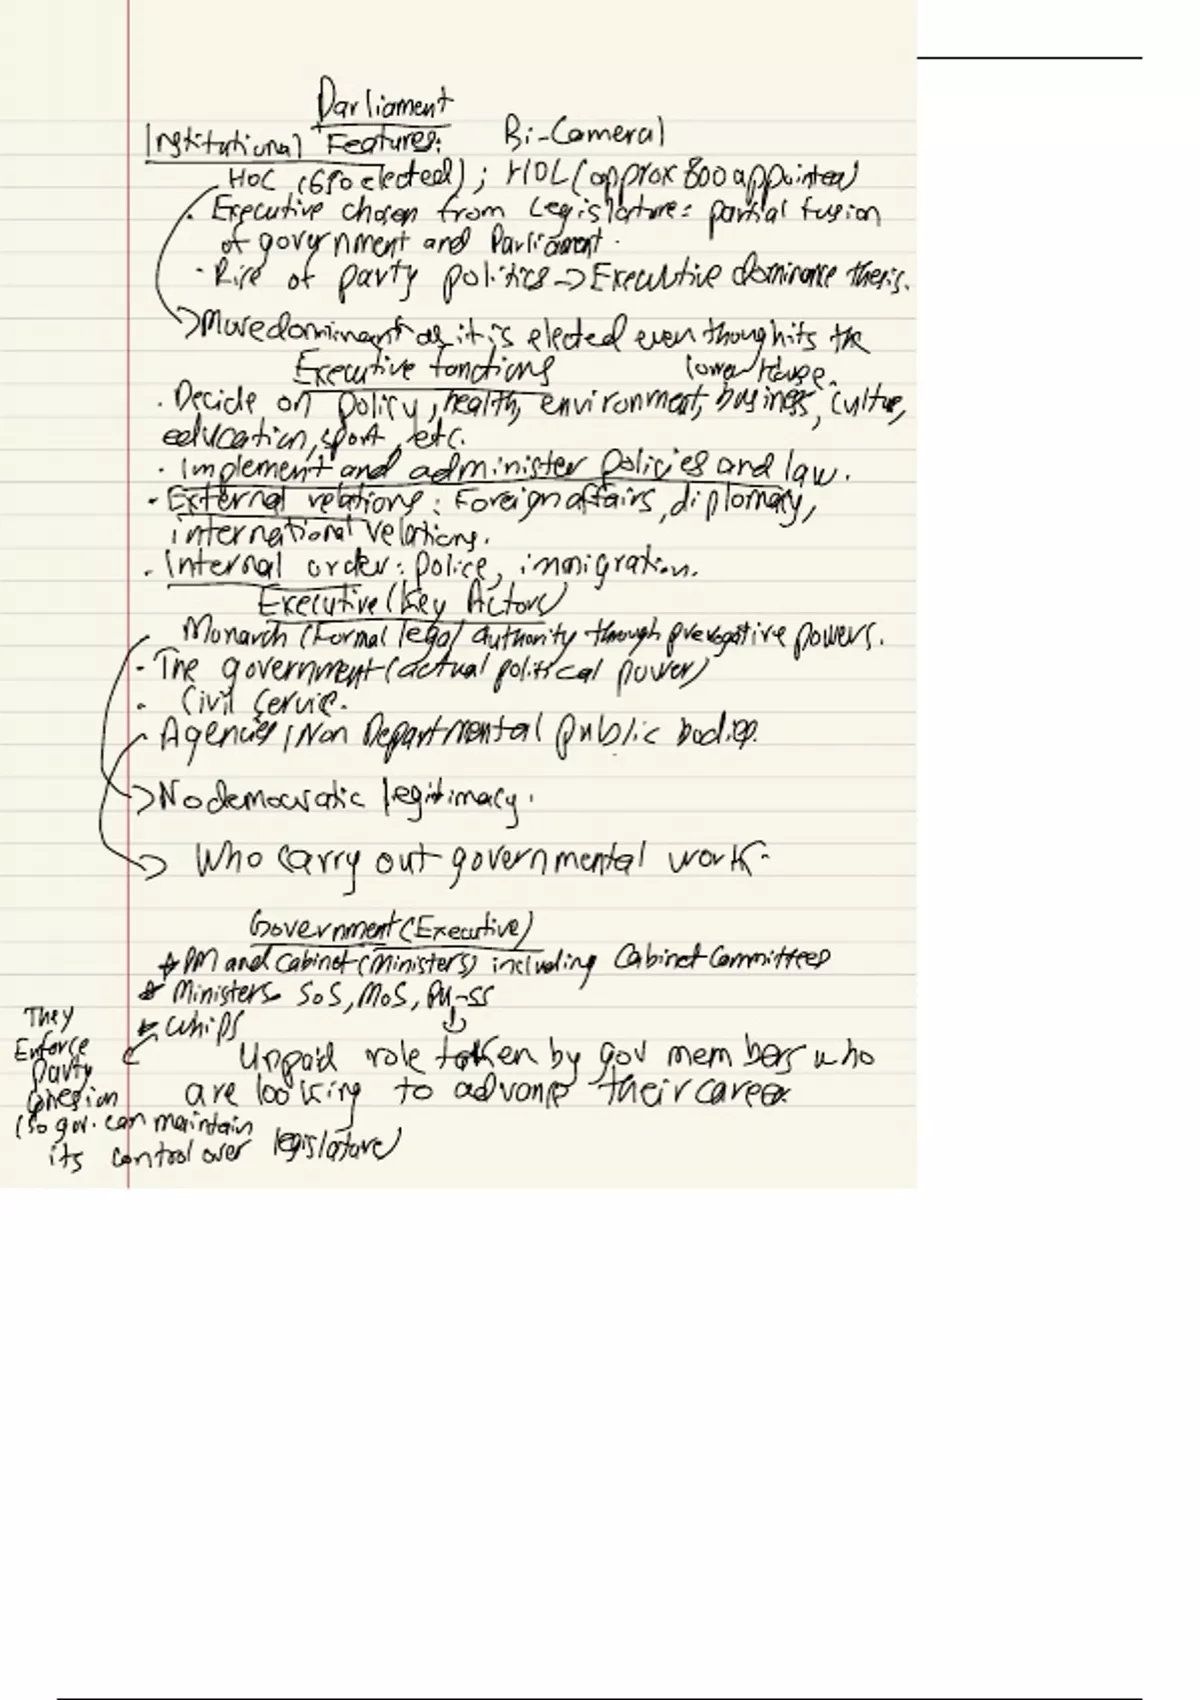 Parliament
Institutional Features: Bi-Cameral
HoC (650 elected); HOL (approx 800 appointed)
. Executive chosen from Legislature: partial fusion
of government and Parliament.
· Rise of party politics -> Executive dominance thesis.
-> More dominant as it is elected even though its the
lower House.
Executive functions
. Decide on policy, health, environment, business, culture,
education, sport, etc.
. Implement and administer policies and law.
· External relations: Foreign affairs, diplomacy,
international relations.
. Internal order: police, immigration.
Executive (Key Actors)
Monarch (Formal legal authority through prerogative powers.
· The government (actual political power)
· Civil Service.
· Agencies, Non Departmental public bodies.
-> No democratic legitimacy.
-> Who carry out governmental work.
Government (Executive)
* PM and Cabinet (Ministers) including Cabinet Committees
* Ministers SoS, MoS, PU-SS
* Whips
Unpaid role taken by gov members who
are looking to advance their career
They
Enforce
Party
Cohesion
(so gov. can maintain
its control over legislature)